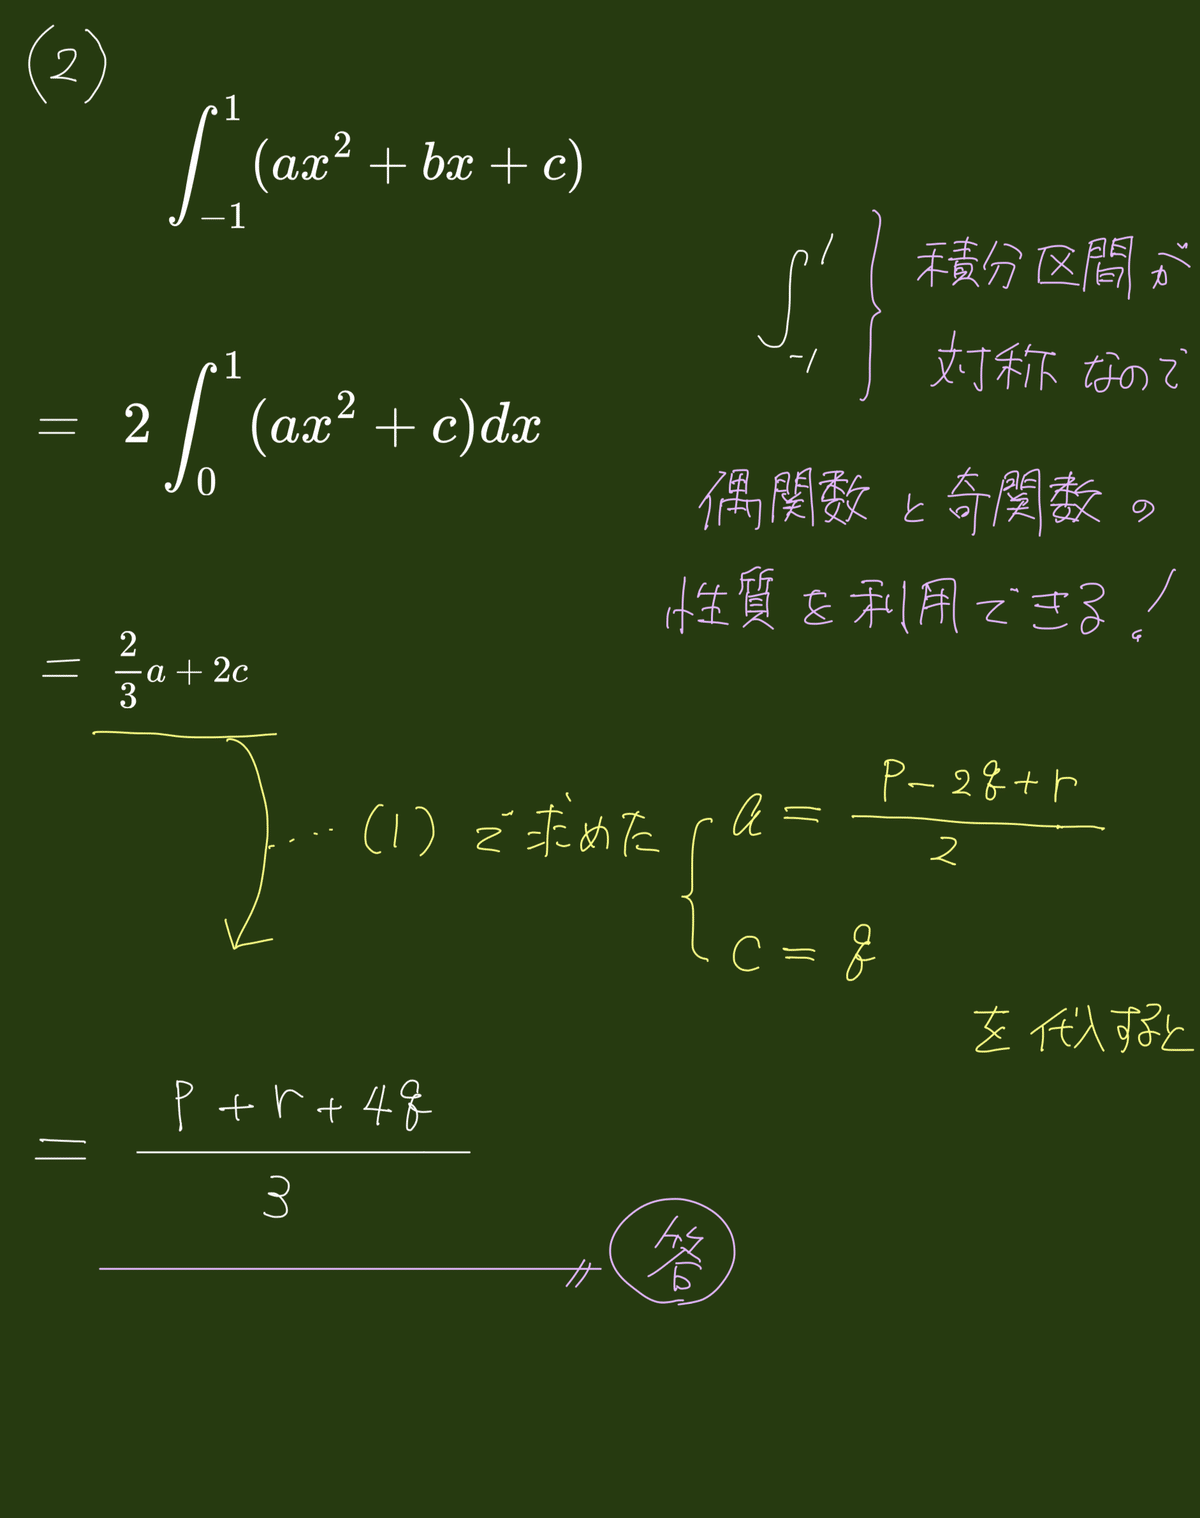 (2)
∫_{-1}^{1} (ax² + bx + c)
∫_{-1}^{1} } 積分区間が
対称なので
= 2∫_{0}^{1} (ax² + c)dx
偶関数と奇関数の
性質を利用できる!
= 2/3 a + 2c
… (1) で求めた { a = (p - 2q + r)/2
c = q
を代入すると
= (p + r + 4q)/3
答